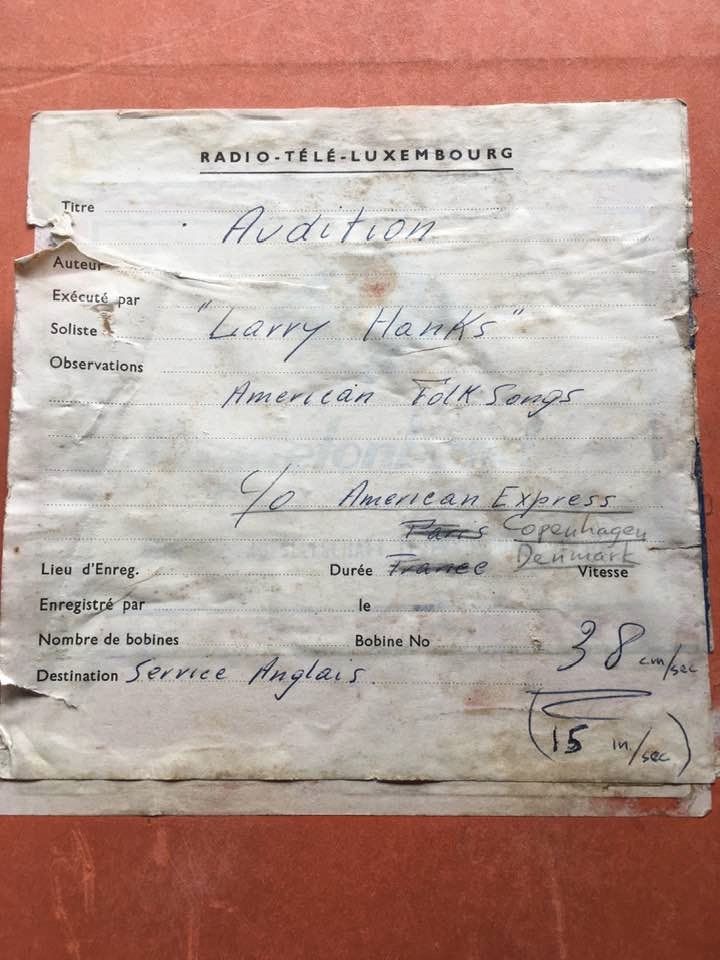 RADIO-TÉLÉ-LUXEMBOURG
Titre Audition
Auteur
Exécuté par
Soliste "Larry Hanks"
Observations
American Folk Songs
c/o American Express
Paris Copenhagen
France Denmark
Lieu d'Enreg. Durée Vitesse
Enregistré par le
Nombre de bobines Bobine No 38 cm/sec
Destination Service Anglais
(15 in/sec)